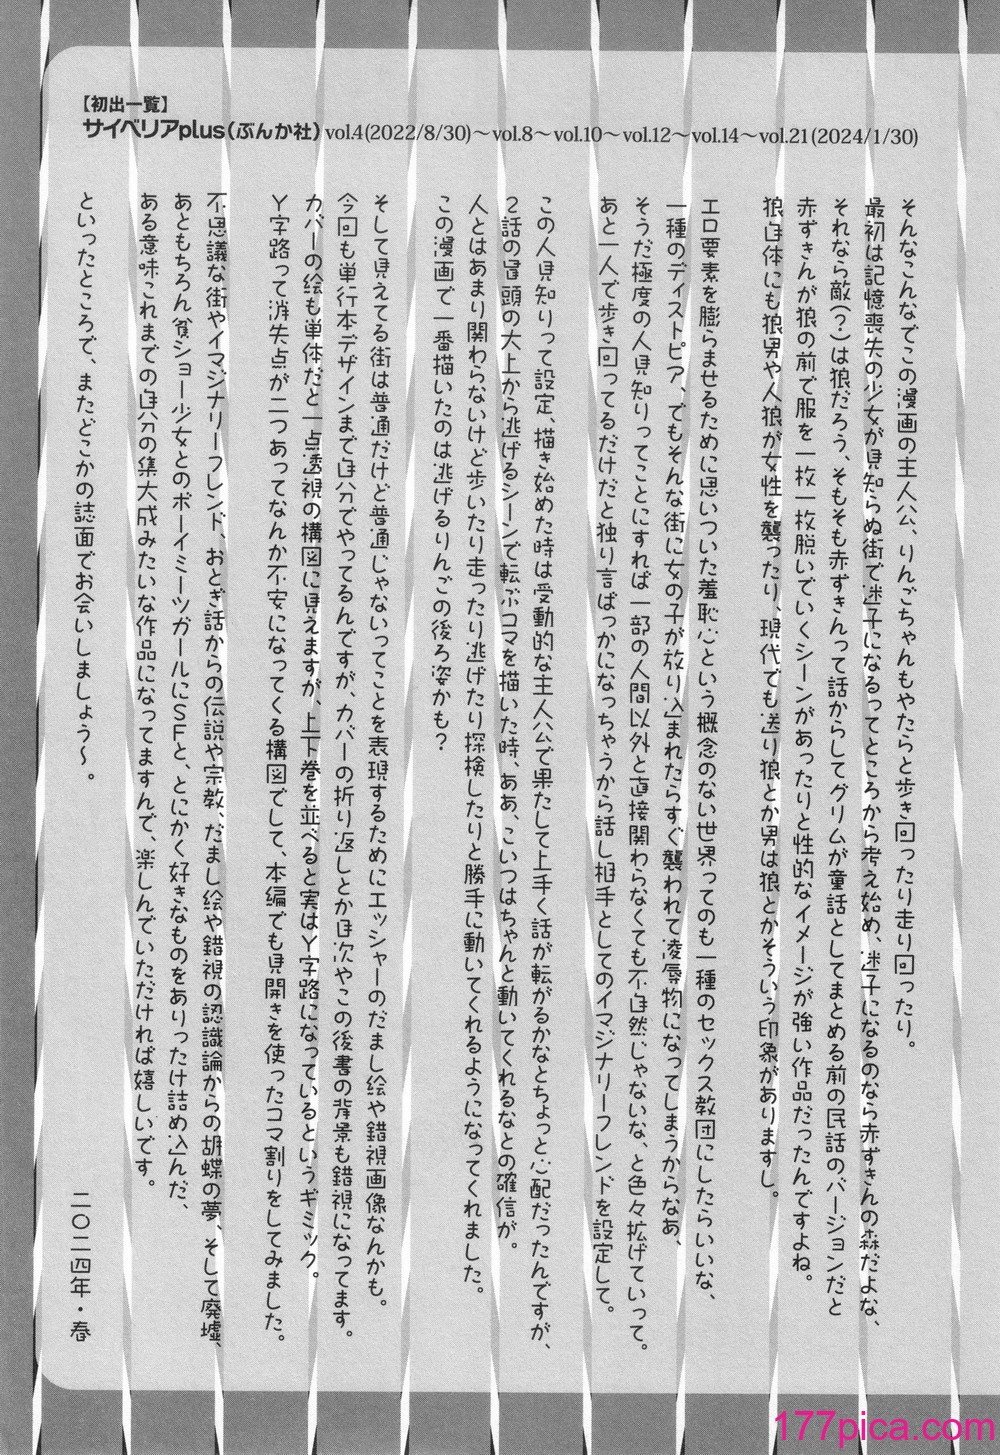 【初出一覧】
サイベリアplus(ぶんか社) vol.4(2022/8/30)〜vol.8〜vol.10〜vol.12〜vol.14〜vol.21(2024/1/30)
そんなこんなでこの漫画の主人公、りんごちゃんもやたらと歩き回ったり走り回ったり。
最初は記憶喪失の少女が見知らぬ街で迷子になるってところから考え始め、迷子になるのなら赤ずきんの森だよな、
それなら敵(?)は狼だろう、そもそも赤ずきんって話からしてグリムが童話としてまとめる前の民話のバージョンだと
赤ずきんが狼の前で服を一枚一枚脱いでいくシーンがあったりと性的なイメージが強い作品だったんですよね。
狼自体にも狼男や人狼が女性を襲ったり、現代でも送り狼とか男は狼とかそういう印象がありますし。
エロ要素を膨らませるために思いついた羞恥心という概念のない世界ってのも一種のセックス教団にしたらいいな、
一種のディストピア、でもそんな街に女の子が放り込まれたらすぐ襲われて凌辱物になってしまうからなあ、
そうだ極度の人見知りってことにすれば一部の人間以外と直接関わらなくても不自然じゃないな、と色々拡げていって。
あと一人で歩き回ってるだけだと独り言ばっかになっちゃうから話し相手としてのイマジナリーフレンドを設定して。
この人見知りって設定、描き始めた時は受動的な主人公で果たして上手く話が転がるかなとちょっと心配だったんですが、
2話の冒頭の犬上から逃げるシーンで転ぶコマを描いた時、ああ、こいつはちゃんと動いてくれるなとの確信が。
人とはあまり関わらないけど歩いたり走ったり逃げたり探検したりと勝手に動いてくれるようになってくれました。
この漫画で一番描いたのは逃げるりんごの後ろ姿かも?
そして見えてる街は普通だけど普通じゃないってことを表現するためにエッシャーのだまし絵や錯視画像なんかも。
今回も単行本デザインまで自分でやってるんですが、カバーの折り返しとか目次やこの後書の背景も錯視になってます。
カバーの絵も単体だと一点透視の構図に見えますが、上下巻を並べると実はY字路になっているというギミック。
Y字路って消失点が二つあってなんか不安になってくる構図でして、本編でも見開きを使ったコマ割りをしてみました。
不思議な街やイマジナリーフレンド、おとぎ話からの伝説や宗教、だまし絵や錯視の認識論からの胡蝶の夢、そして廃墟、
あともちろん貧ショー少女とのボーイミーツガールにSFと、とにかく好きなものをありったけ詰め込んだ、
ある意味これまでの自分の集大成みたいな作品になってますんで、楽しんでいただければ嬉しいです。
といったところで、またどこかの誌面でお会いしましょう〜。
二〇二四年・春
177pica.com